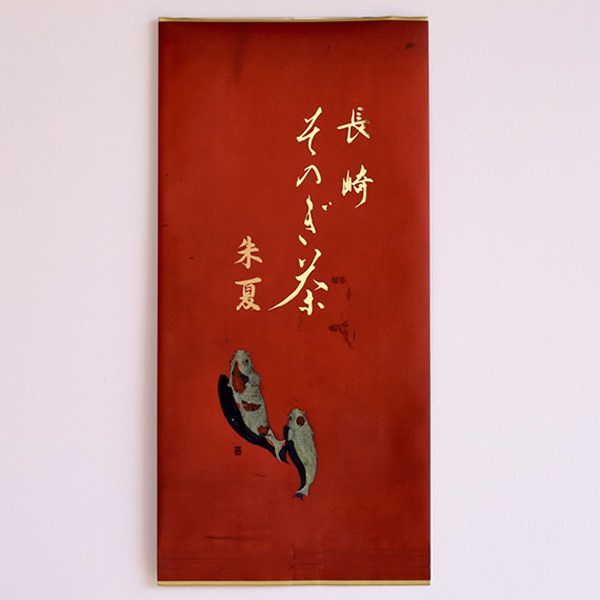 長崎
そのぎ茶
朱夏